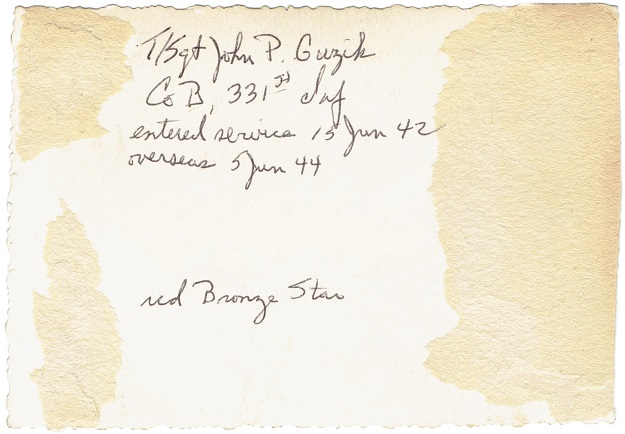 T/Sgt John P. Guzik
Co B, 331st Inf
entered service 15 Jun 42
overseas 5 Jun 44
rcd Bronze Star